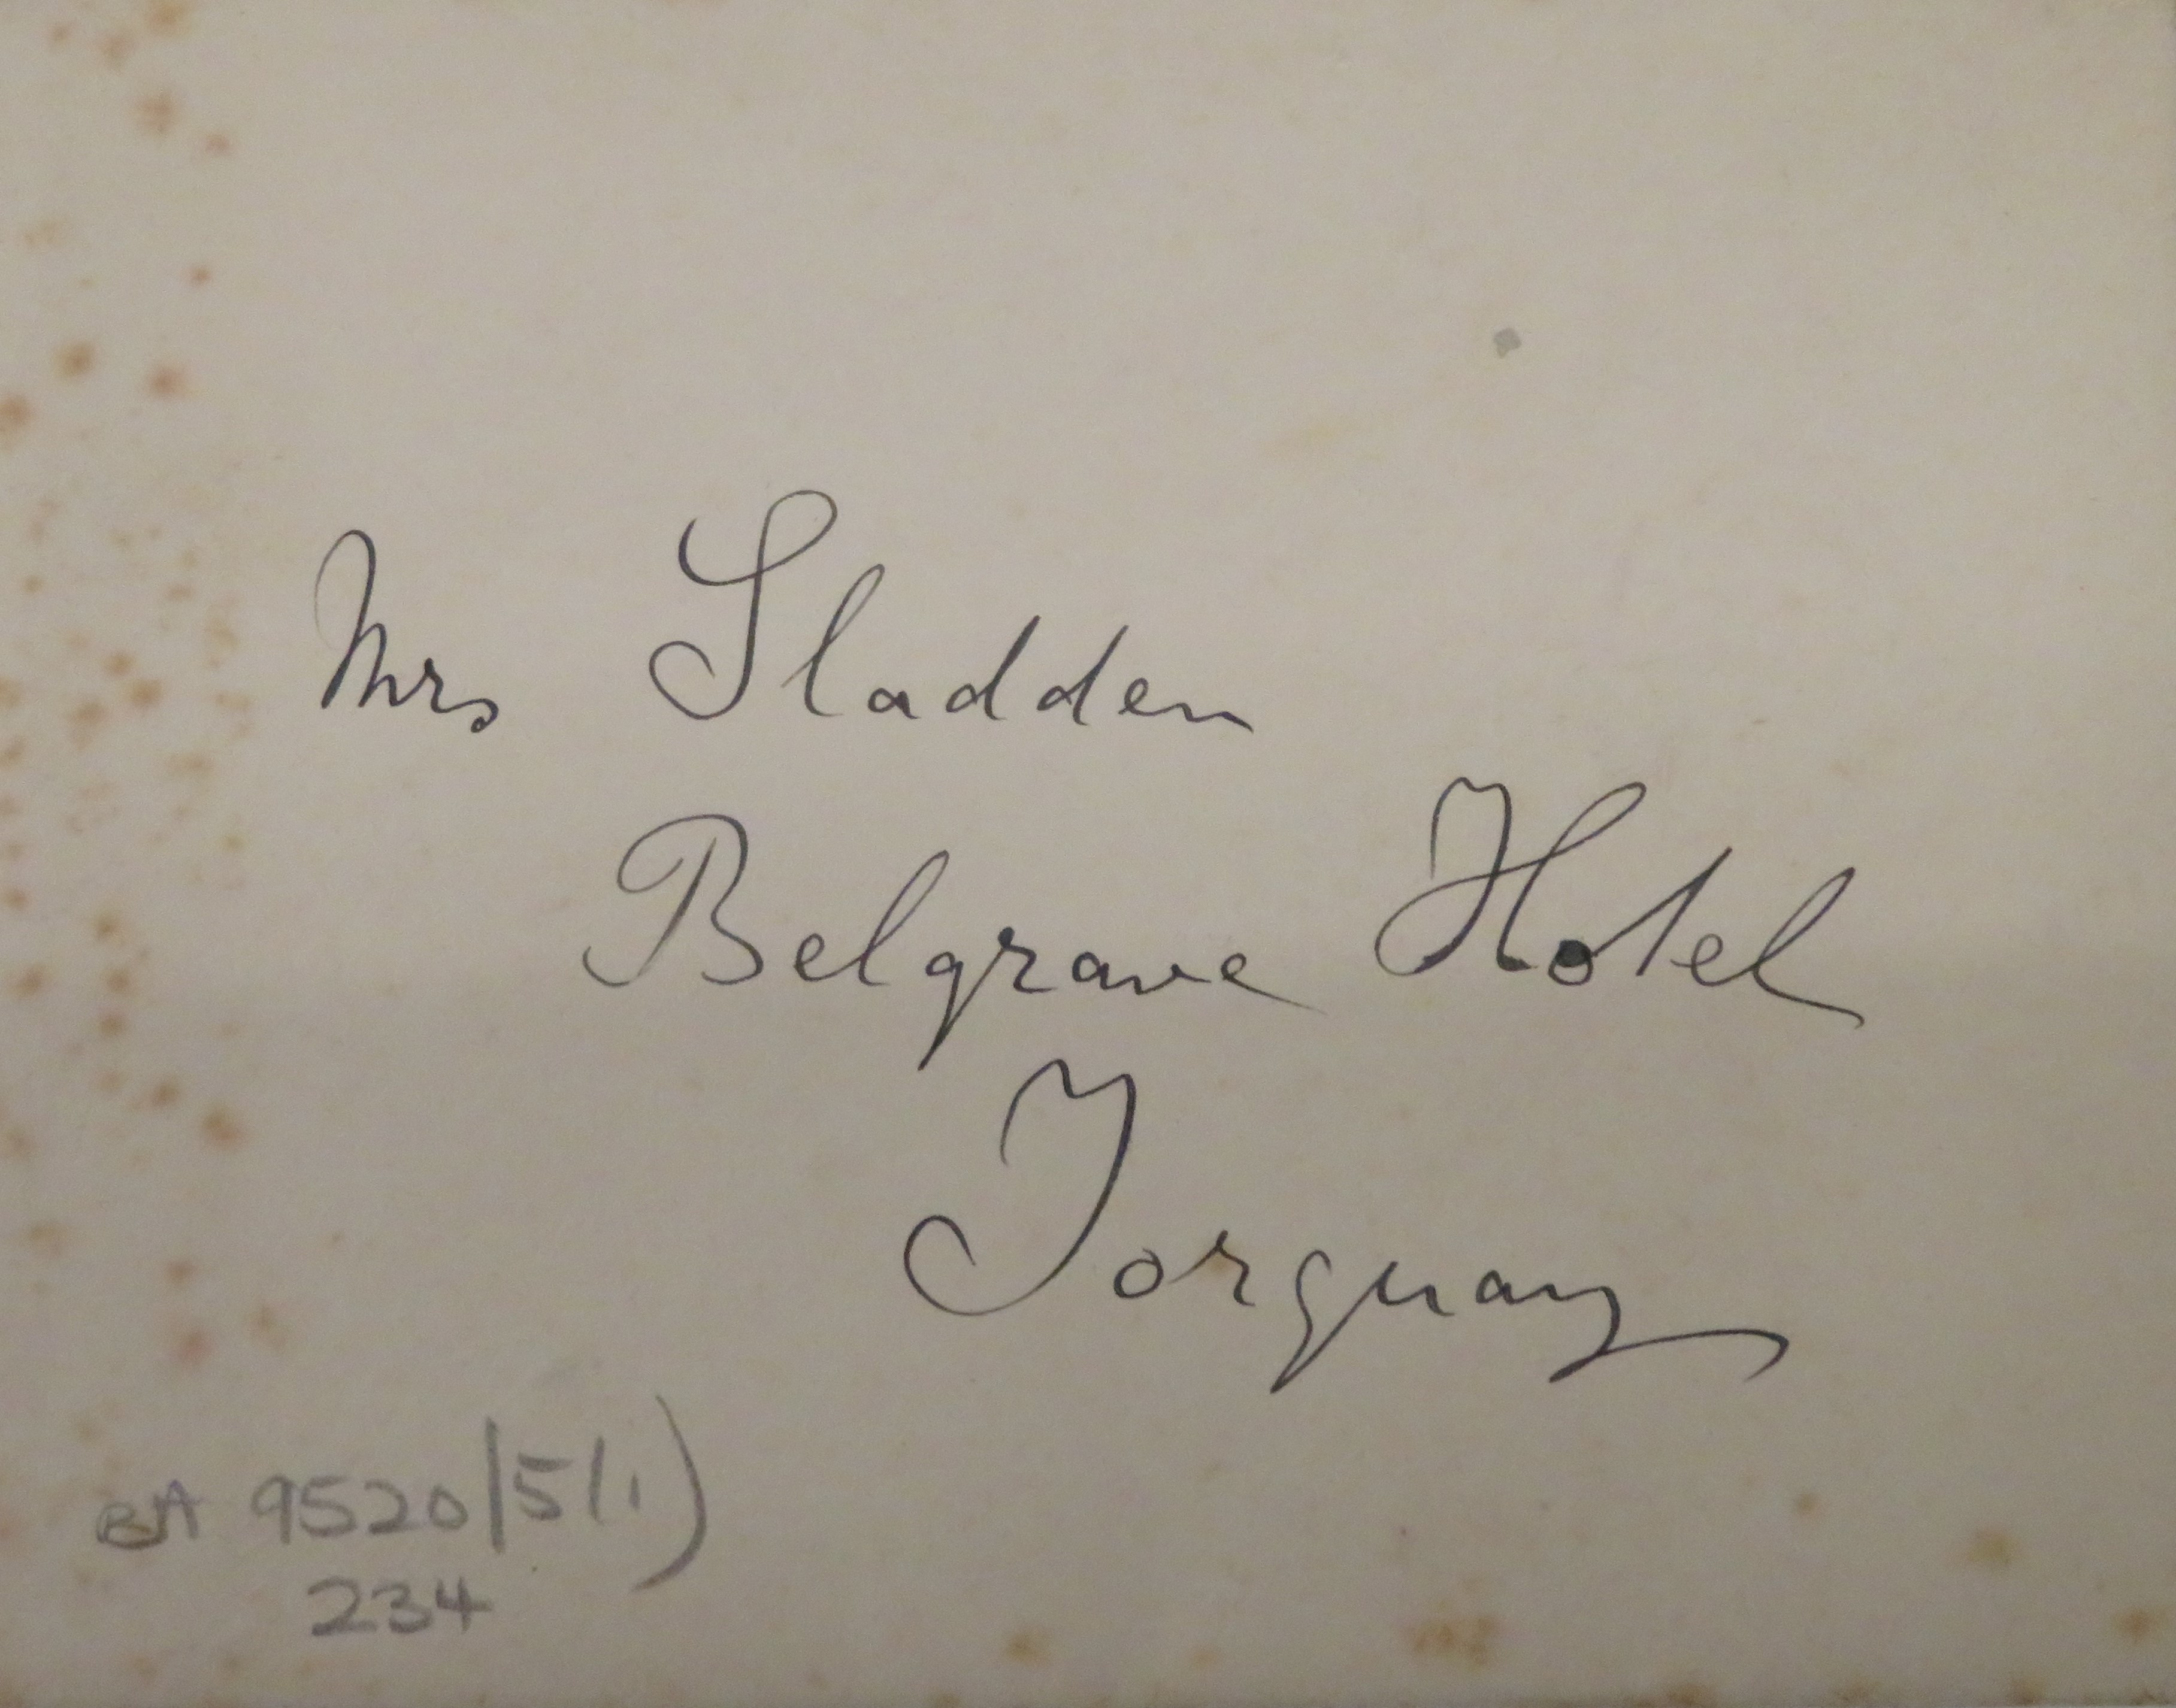 Mrs Sladden
Belgrave Hotel
Torquay
BA 9520/5(1)
234